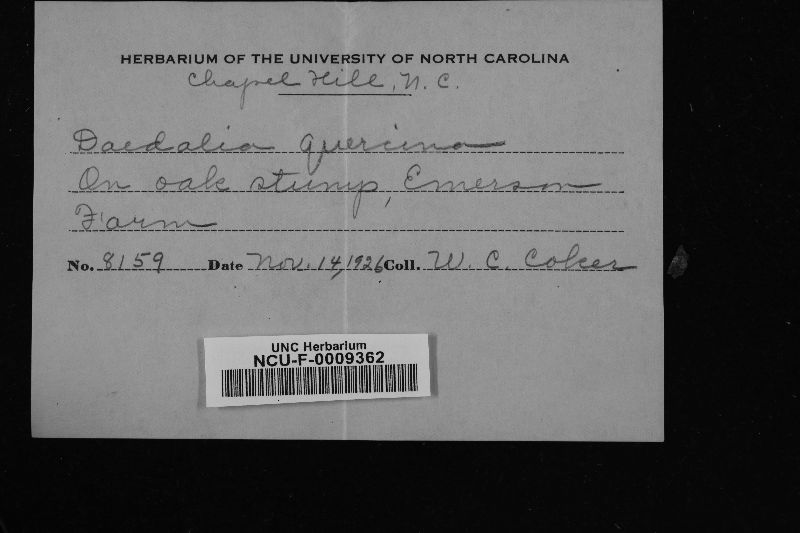 HERBARIUM OF THE UNIVERSITY OF NORTH CAROLINA
Chapel Hill, N. C.
Daedalia quercina
On oak stump, Emerson
Farm
No. 8159 Date Nov. 14, 1926 Coll. W. C. Coker
UNC Herbarium
NCU-F-0009362